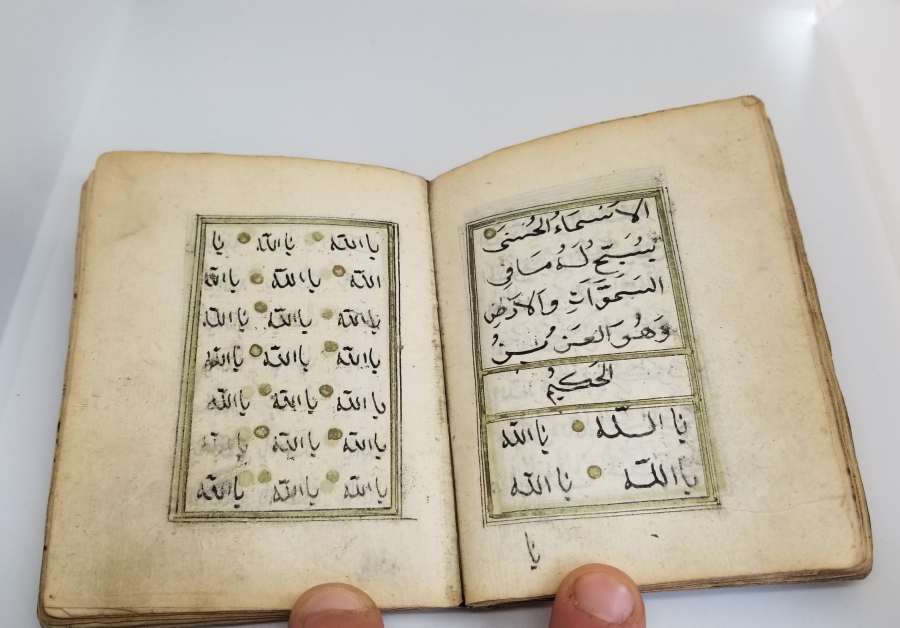 الاَسْمَاءُ الحُسْنى
يُسَبِّحُ لَهُ مَا فِي
السَّمَوَاتِ وَالاَرْضِ
وَهُوَ العَزِيزُ
الحَكِيمُ
يا اللّه يا اللّه
يا اللّه يا اللّه
يا
يا اللّه يا اللّه يا
اللّه يا اللّه يا اللّه
يا اللّه يا اللّه يا اللّه
يا اللّه يا اللّه يا اللّه
يا اللّه يا اللّه يا اللّه
يا اللّه يا اللّه يا اللّه
يا اللّه يا اللّه يا اللّه